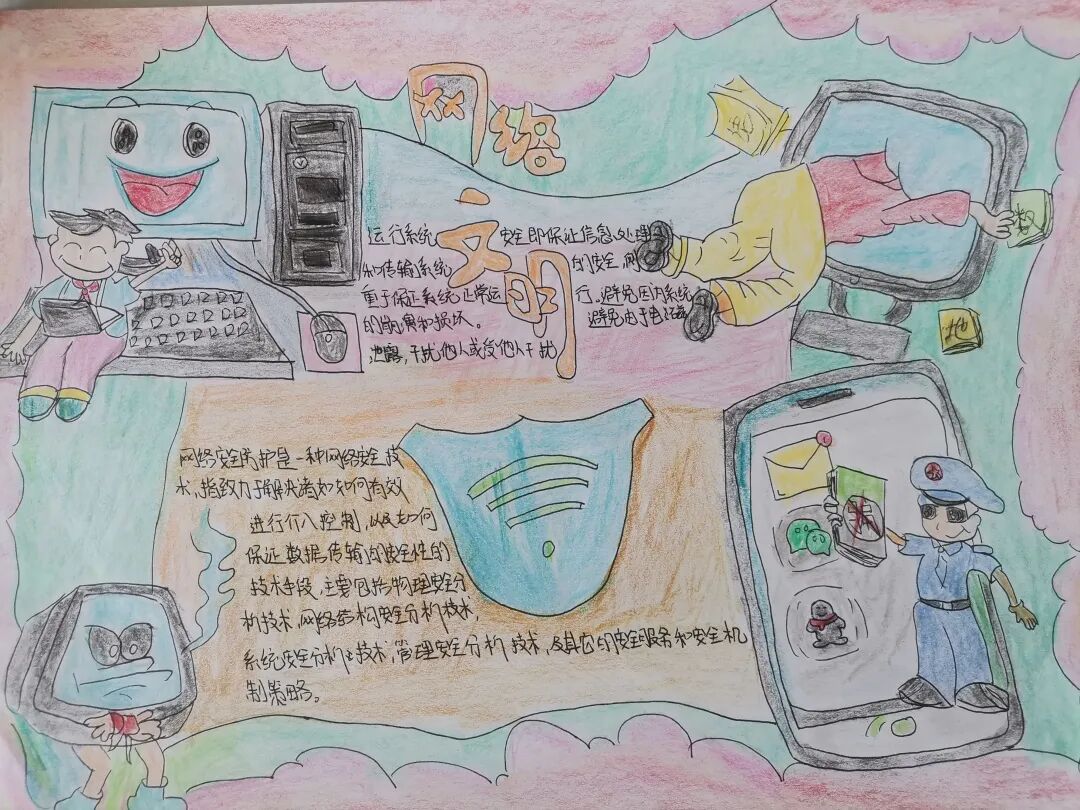 网络
文明
运行系统安全即保证信息处理
和传输系统的安全,侧
重于保证系统正常运行。避免因为系统
的崩溃和损坏。避免由于电磁
泄露,干扰他人或受他人干扰
数
地
网络安全防护是一种网络安全技
术,指致力于解决诸如如何有效
进行介入控制,以及如何
保证数据传输的安全性的
技术手段,主要包括物理安全分
析技术,网络结构安全分析技术,
系统安全分析技术,管理安全分析技术,及其它的安全服务和安全机
制策略。